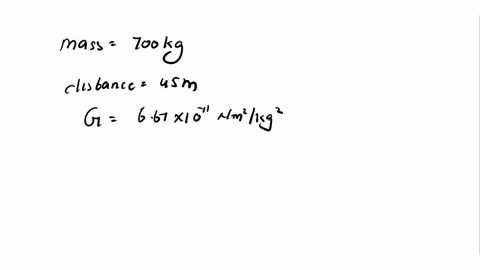 mass = 700kg
distance = 45m
G = 6.67 x10⁻¹¹ Nm²/kg²